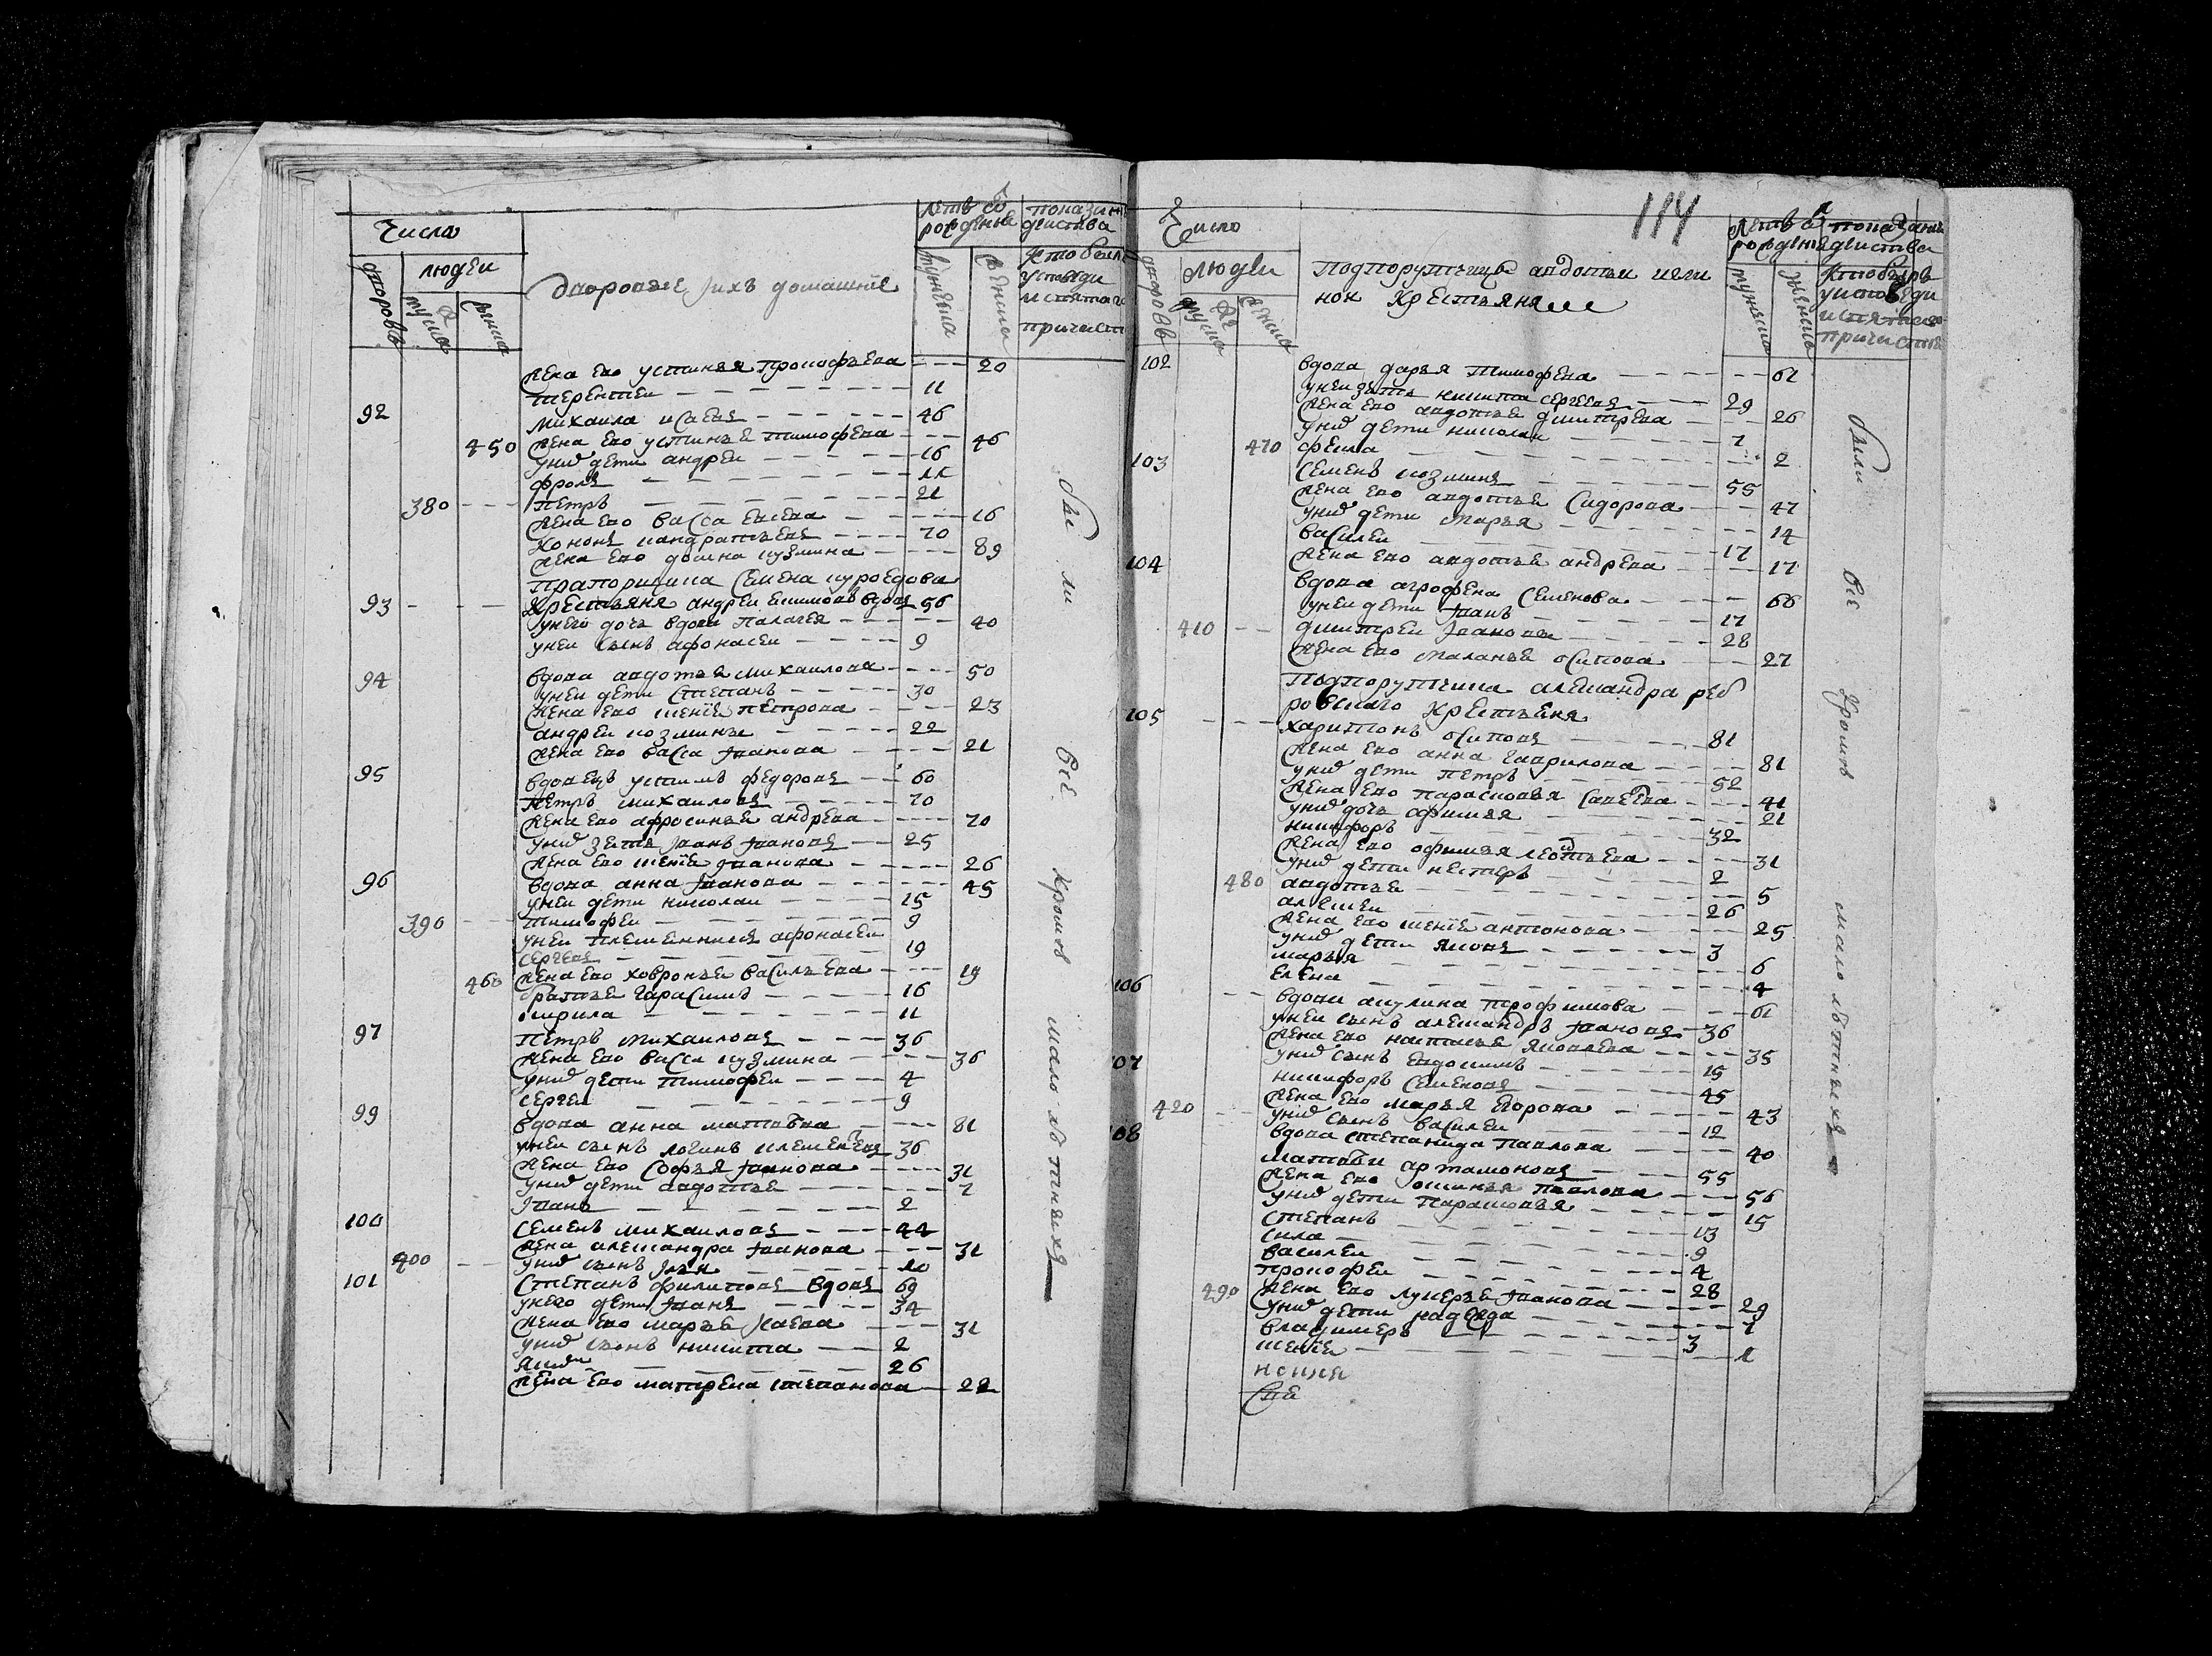 Числа
людеи
дворовъ
муска
женска
дворовые ихъ домашние
летъ от
рождения
показан
действа
мужеска
женска
кто былъ
у исповеди
и святаго
причаст
жена ево устинья прокофьева - - - 20
терентеи - - - 11
92 михаила исаевъ - - - 46
450 жена ево устинья тимофеева - - - 46
у них дети андреи - - - 16
фролъ - - - 11
380 - - - петръ - - - 21
жена ево васса евсева - - - 16
кононъ кандратьевъ - - - 70
жена ево домна кузмина - - - 89
прапорщика семена куроедова
93 - - - крестьяня андреи екимовъ вдовъ 56
у него дочь вдова палагея - - - 40
у неи сынъ афонасеи - - - 9
94 вдова авдотья михаилова - - - 50
у неи дети степанъ - - - 30
жена ево ксения петрова - - - 23
андреи козминъ - - - 22
жена ево васса иванова - - - 21
95 вдовецъ устимъ федоровъ - - - 60
петръ михаиловъ - - - 70
жена ево афросинья андрева - - - 70
у них зять иванъ ивановъ - - - 25
жена ево ксения иванова - - - 26
96 вдова анна иванова - - - 45
у неи дети николаи - - - 15
390 - - - тимофеи - - - 9
у неи племянникъ афонасеи
сергеевъ - - - 19
460 жена ево ховронья васильева - - - 19
братья гарасимъ - - - 16
кирила - - - 11
97 петръ михаиловъ - - - 36
жена ево васса кузмина - - - 36
у них дети тимофеи - - - 4
сергеи - - - 9
99 вдова анна матвеева - - - 81
у неи сынъ логинъ клементевъ 36
жена ево софья иванова - - - 31
у них дети авдотья - - - 7
иванъ - - - 2
100 семенъ михаиловъ - - - 44
жена александра иванова - - - 31
400 - - у них сынъ иванъ - - - 10
101 степанъ филиповъ вдовъ 69
у него дети иванъ - - - 34
жена ево марья исаева - - - 31
у них сынъ никита - - - 2
якимъ - - - 26
жена ево матрена степанова - - - 22
бы ли все кроме мало летныхъ
114
Число
людеи
дворовъ
муска
женска
подпорутчицы авдотьи
крестьяня
летъ от
рождения
показание
действа
мужеска
женска
кто былъ
у исповеди
и святаго
причастия
102 вдова дарья тимофеева - - - 61
у неи зять никита сергеевъ - - - 29
жена ево авдотья дмитрева - - - 26
у них дети николаи - - - 7
470 фекла - - - 2
103 семенъ козминъ - - - 55
жена ево авдотья сидорова - - - 47
у них дети марья - - - 14
василеи - - - 17
жена ево авдотья андрева - - - 17
104 вдова агрофена семенова - - - 66
у неи дети иванъ - - - 17
410 - - дмитреи ивановъ - - - 28
жена ево маланья осипова - - - 27
подпорутчика александра реб
ровскаго крестьяня
105 - - - харитонъ осиповъ - - - 81
жена ево анна гаврилова - - - 81
у них дети петръ - - - 52
жена ево парасковья савеева - - - 41
у них дочь афимья - - - 21
никифоръ - - - 32
жена ево офимья леонтьева - - - 31
у них дети нестеръ - - - 2
480 авдотья - - - 5
алексеи - - - 26
жена ево ксения антонова - - - 25
у них дети яковъ - - - 3
марья - - - 6
елена - - - 4
106 - - вдова акулина трофимова - - - 61
у неи сынъ александръ ивановъ - 36
жена ево наталья яковлева - - - 35
у них сынъ евдокимъ - - - 15
107 никифоръ семеновъ - - - 45
жена ево марья егорова - - - 43
420 - - у них сынъ василеи - - - 12
108 вдова степанида павлова - - - 40
матвеи артамоновъ - - - 55
жена ево аксинья павлова - - - 56
у них дети парасковья - - - 15
степанъ - - - 13
сила - - - 9
василеи - - - 4
прокофеи - - - 28
490 жена ево лукерья иванова - - - 29
у них дети надежда - - - 7
владимеръ - - - 3
ксения - - - 1
были все кроме мало летныхъ